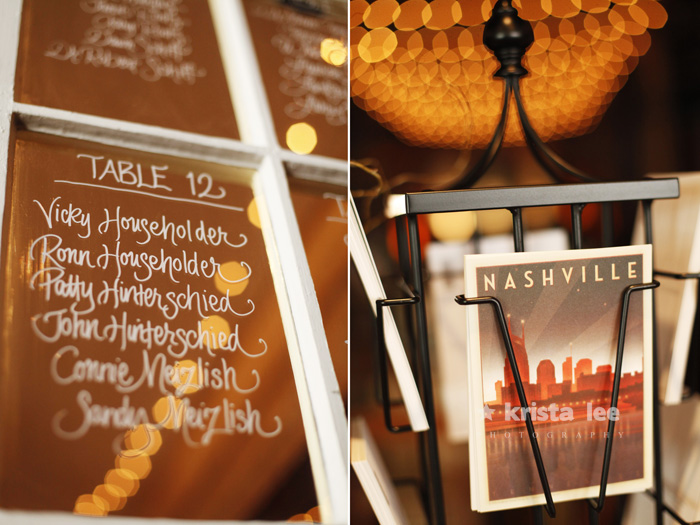 TABLE 12
Vicky Householder
Ronn Householder
Patty Hinterschied
John Hinterschied
Connie Meizlish
Sandy Meizlish
NASHVILLE
krista lee
PHOTOGRAPHY